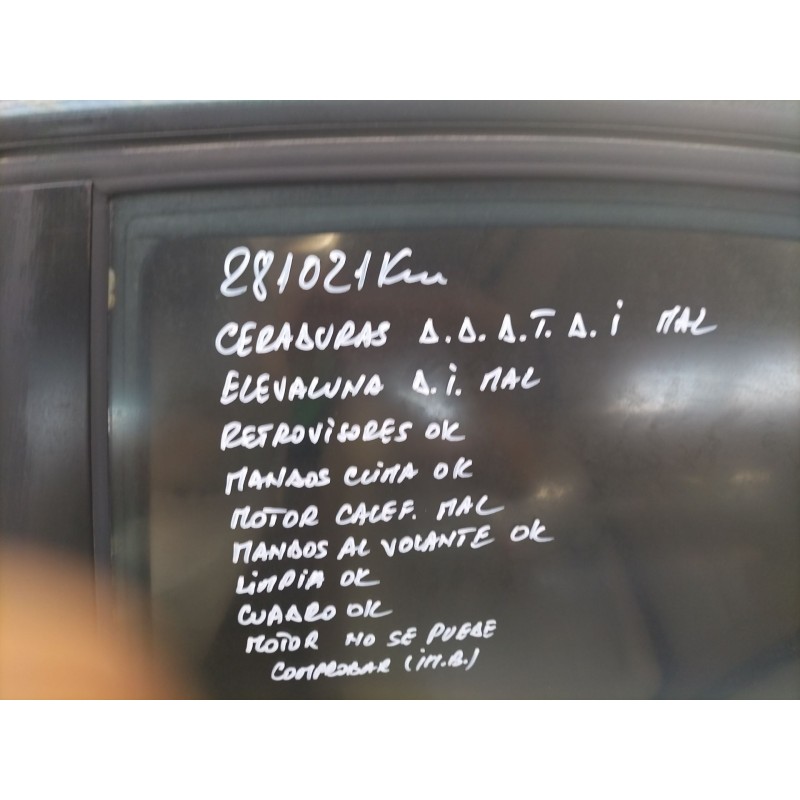 281021 Km
CERADURAS D.D. D.T. D.i MAL
ELEVALUNA D.i. MAL
RETROVISORES OK
MANDOS CLIMA OK
MOTOR CALEF. MAL
MANDOS AL VOLANTE OK
LIMPIA OK
CUADRO OK
MOTOR NO SE PUEDE
COMPROBAR (iM.B.)